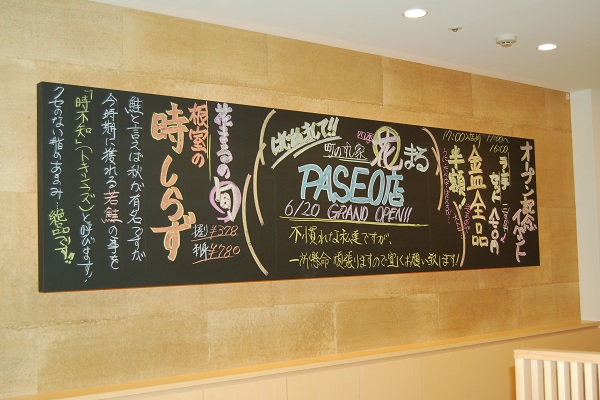 オープン記念イベント
11:00〜
ランチ
17:00〜
金皿全品
半額!
出逢えて!!
町のすし家
花まる
PASEO店
6/20 GRAND OPEN!!
不慣れな私達ですが、
一所懸命頑張りますので宜しくお願い致します!
花まるの旬
根室の
時しらず
握り ¥378
刺身 ¥780
鮭と言えば秋が有名ですが
今時期に獲れる若鮭の事を
「時不知」(トキシラズ)と呼びます!
クセのない脂のあまみ…絶品です!!